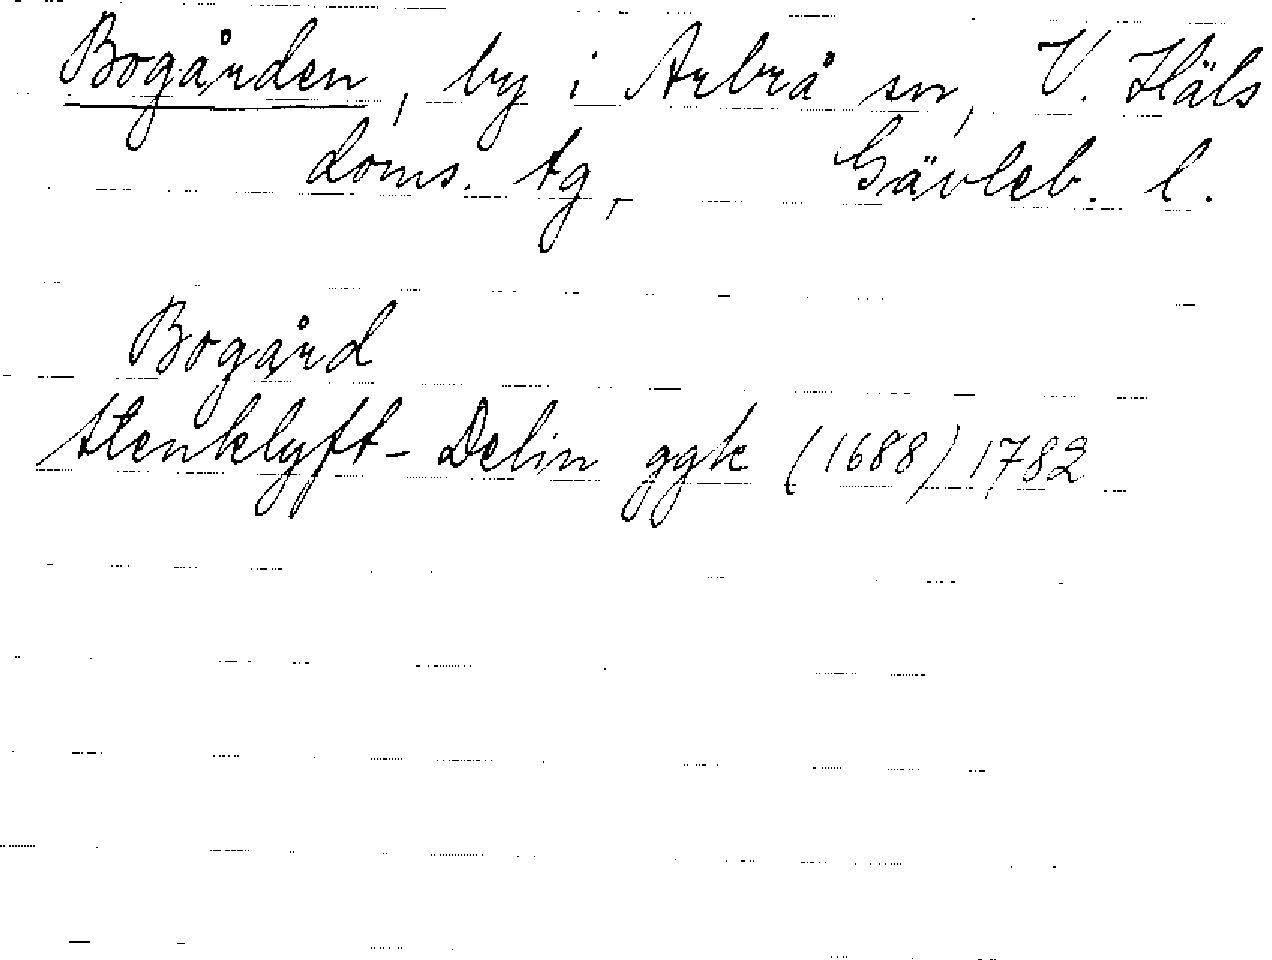 Bogården, by i Arbrå sn, V. Häls
doms. tg, Gävleb. l.
Bogård
Stenklyft-Delin ggk (1688) 1782